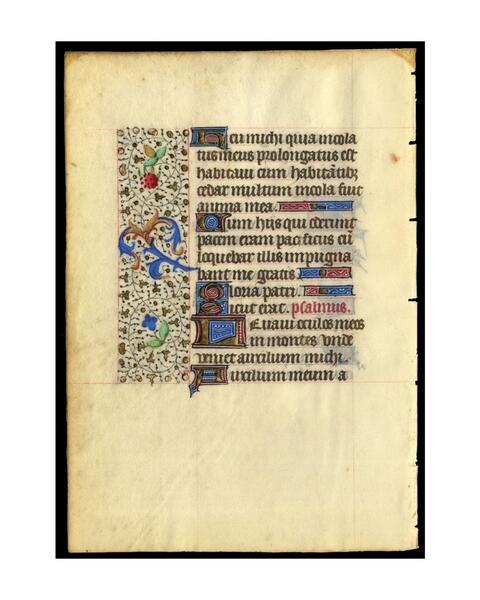 Heu michi quia incola
tus meus prolongatus est
habitavi cum habitātibz
cedar multum incola fuit
anima mea.
Cum hiis qui oderunt
pacem eram pacificus cū
loquebar illis impugna
bant me gratis.
Gloria patri.
Sicut erat. psalmus.
Levavi occulos meos
in montes unde
veniet auxilium michi.
Auxilium meum a